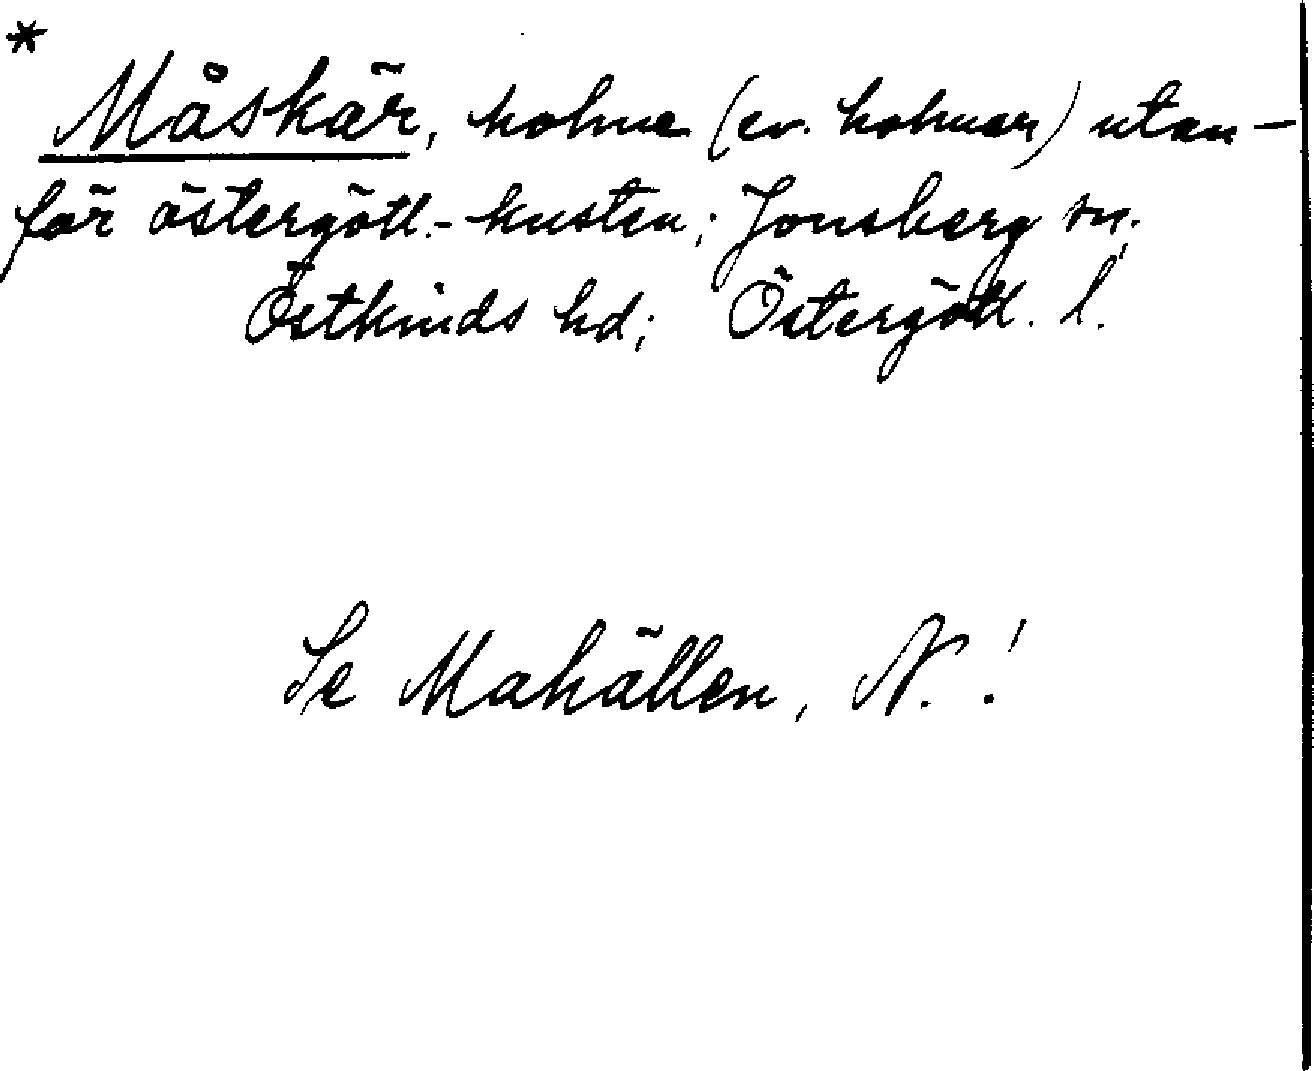 *
Måskär, holme (ev. holmar) utan-
för östergötl.-kusten; Jonsberg sn.
Östkinds hd; Östergötl. l.
Se Mahällen, N.!